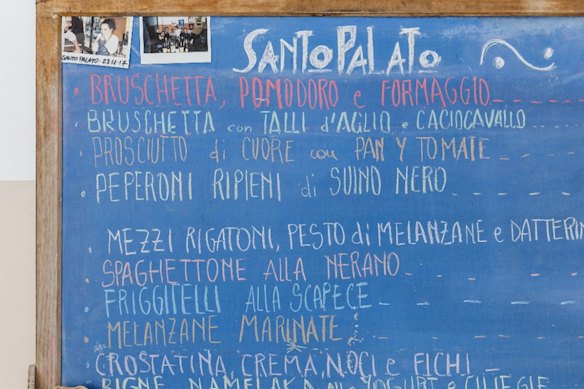 SANTO PALATO 03·12·17
SANTOPALATO
· BRUSCHETTA, POMODORO e FORMAGGIO
BRUSCHETTA con TALLI d'AGLIO e CACIOCAVALLO
· PROSCIUTTO di CUORE con PAN Y TOMATE
· PEPERONI RIPIENI di SUINO NERO
· MEZZI RIGATONI, PESTO di MELANZANE e DATTERIN
· SPAGHETTONE ALLA NERANO
· FRIGGITELLI ALLA SCAPECE
· MELANZANE MARINATE
· CROSTATINA, CREMA, NOCI e FICHI
BIGNE, NAMELAKA allo YOGURT e CILIEGIE